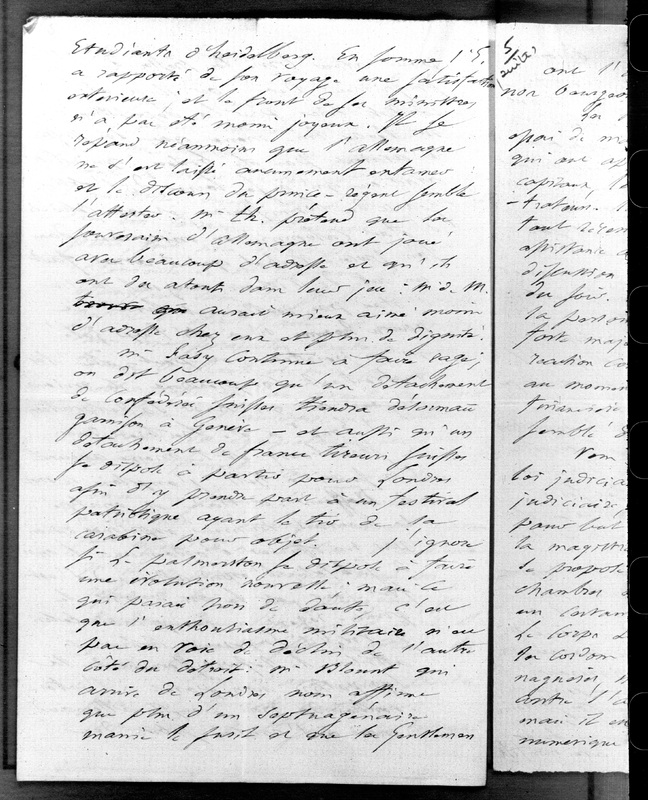 Etudiants d'heidelberg. En somme l'E.
a rapporté de son voyage une satisfaction
extérieure ; et le front de ses ministres
n'a pas été moins joyeux. Il se
répand néanmoins que l'allemagne
ne s'est laissé aucunement entamer
et le discours du prince-régent semble
l'attester. Mr Th. prétend que les
souverains d'allemagne ont joué
avec beaucoup d'adresse et qu'ils
ont des atouts dans leur jeu : Mr de M.
aurait mieux aimé moins
d'adresse chez eux et plus de dignité.
Mr fazy continue à faire rage ;
on dit beaucoup qu'un détachement
de confédérés suisses tiendra désormais
garnison à Genève - et aussi qu'un
détachement de francs tireurs suisses
se dispose à partir pour Londres
afin d'y prendre part à un festival
patriotique ayant le tir de la
carabine pour objet. J'ignore
si L. palmerston se dispose à faire
une évolution nouvelle : mais ce
qui parait hors de doute, c'est
que l'enthousiasme militaire n'est
pas en voie de déclin de l'autre
côté du détroit. Mr Blount qui
arrive de Londres nous affirme
que plus d'un septuagénaire
manie le fusil et que les gentlemen
5/
suite
ont l'
non bourgeoi
les
epou de m
qui ont ap
capitaux, l
tout
assistance
discussion
du soir.
la person
forte maj
réaction co
au momen
financière
semblé
loi judicia
judiciaire
pour but
la magistr
se propose
chambres
un certain
Le corps
les cordon
contre l'a
mais il en
numérique